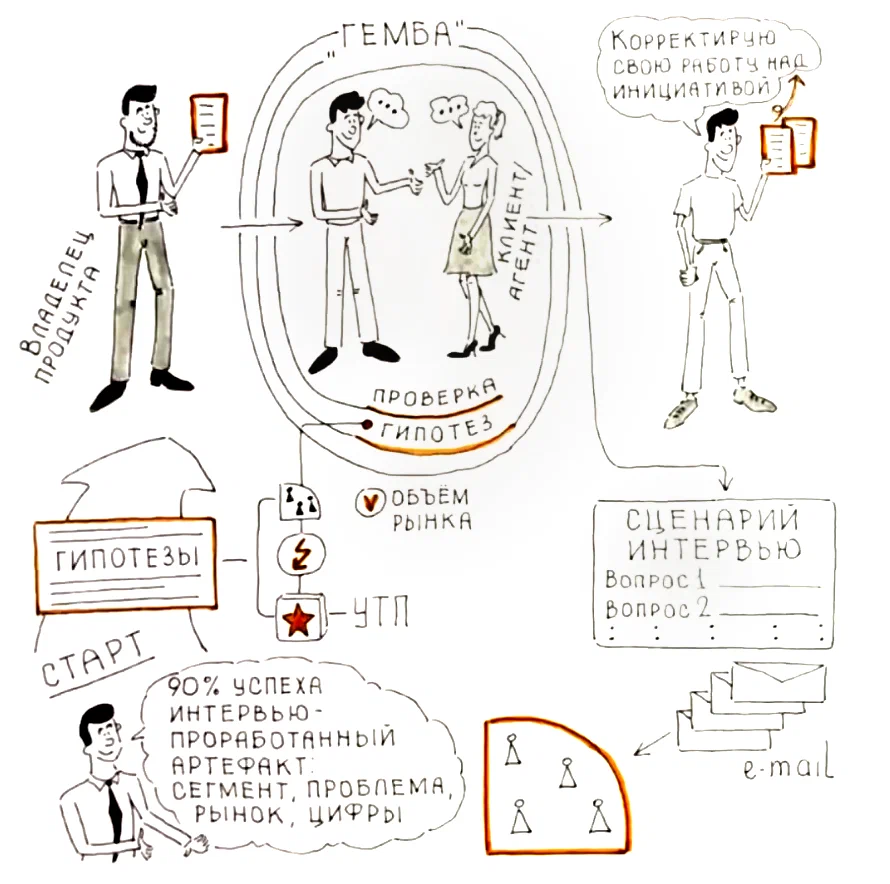 "ГЕМБА"
КОРРЕКТИРУЮ
СВОЮ РАБОТУ НАД
ИНИЦИАТИВОЙ
ВЛАДЕЛЕЦ
ПРОДУКТА
КЛИЕНТ/
АГЕНТ
ПРОВЕРКА
ГИПОТЕЗ
V ОБЪЁМ
РЫНКА
ГИПОТЕЗЫ
УТП
СТАРТ
СЦЕНАРИЙ
ИНТЕРВЬЮ
ВОПРОС 1
ВОПРОС 2
90% УСПЕХА
ИНТЕРВЬЮ-
ПРОРАБОТАННЫЙ
АРТЕФАКТ:
СЕГМЕНТ, ПРОБЛЕМА,
РЫНОК, ЦИФРЫ
e-mail